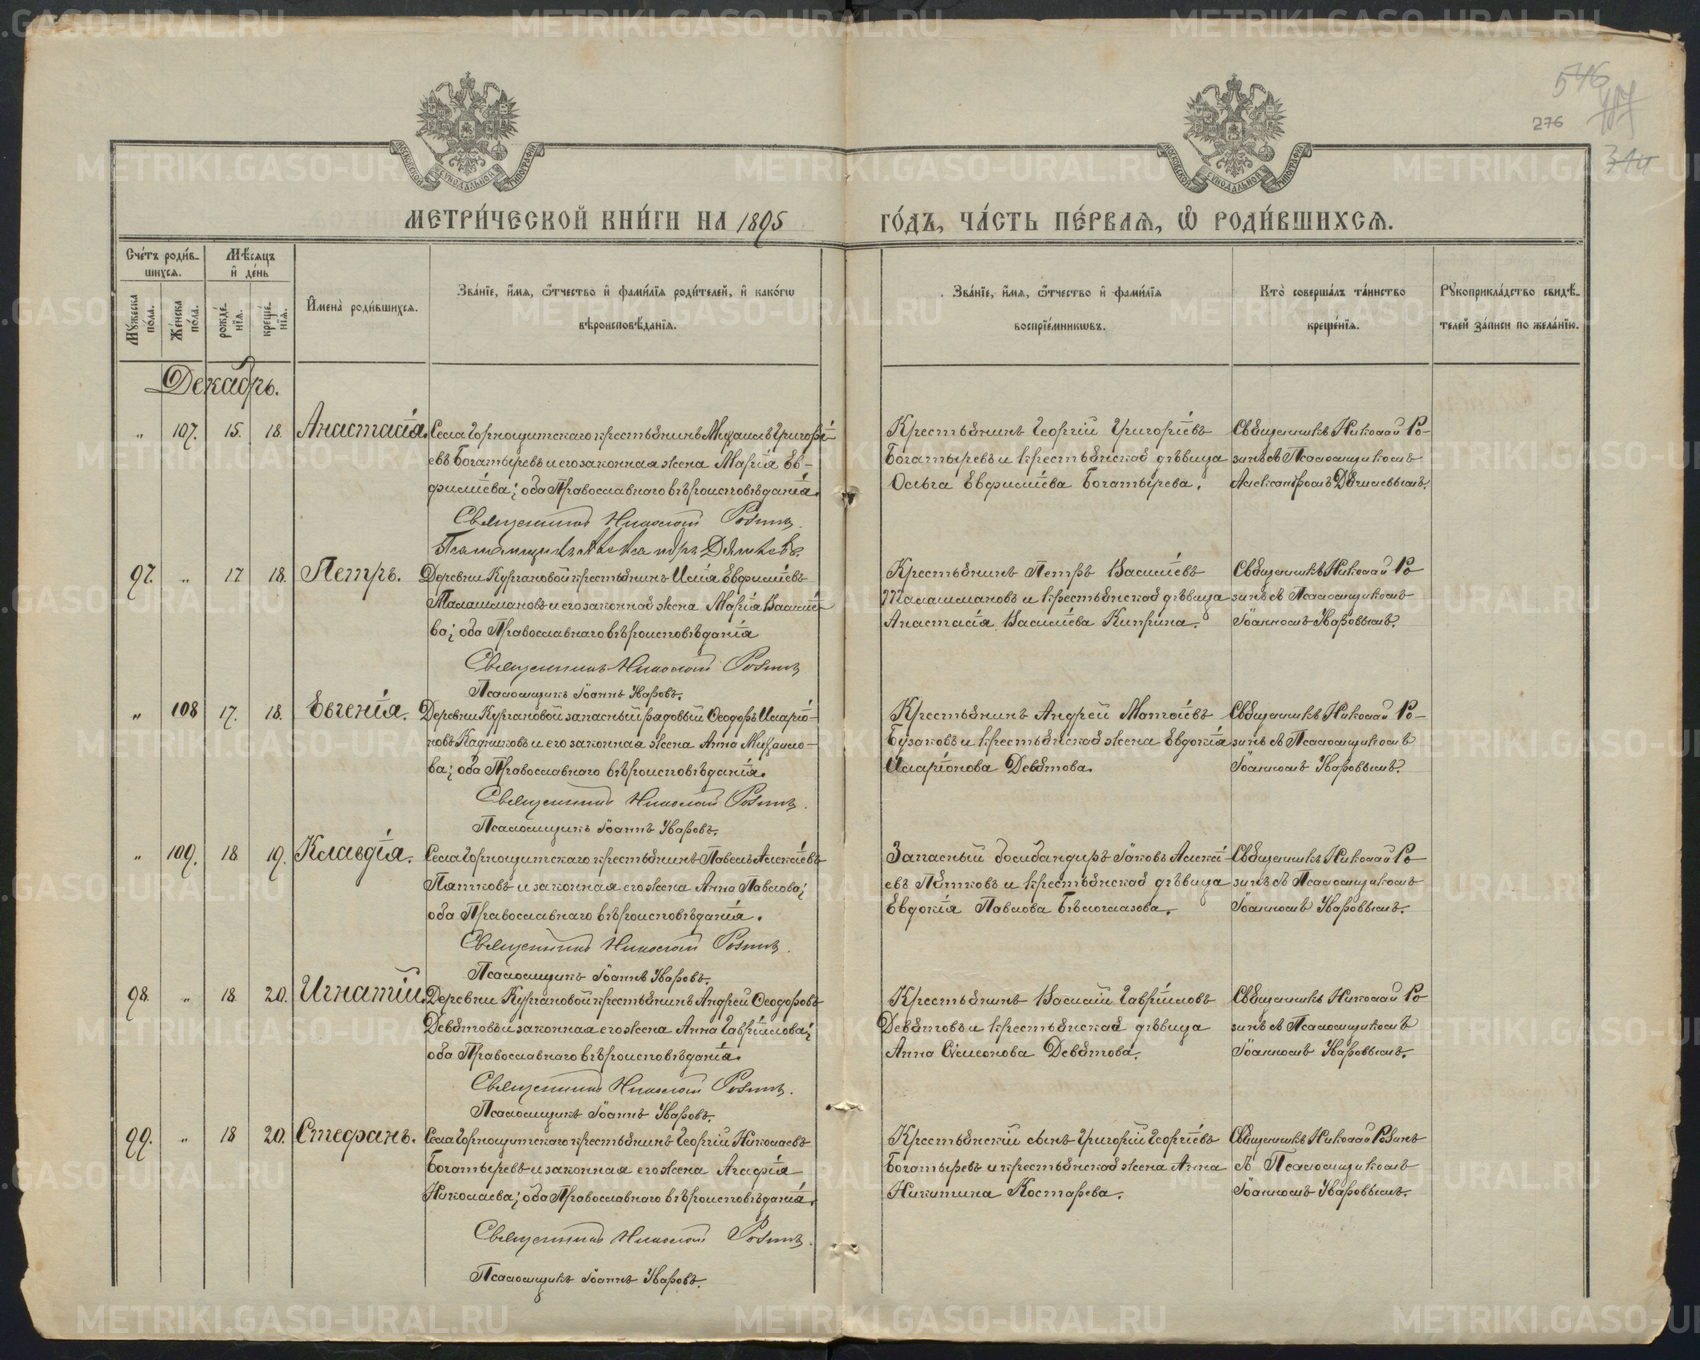 546
107
276
344
МЕТРИ́ЧЕСКОЙ КНИ́ГИ НА 1895
ГО́ДЪ, ЧА́СТЬ ПЕ́РВАЯ, Ѡ РОДИ́ВШИХСЯ.
Сче́тъ роди́в-
шихся.
Мѣ́сяцъ
и де́нь
Мꙋжеска по́ла.
Же́нска по́ла.
рожде́-
нїя.
креще́-
нїя.
Имена̀ роди́вшихся.
Зва́нїе, имя, ѻтчество и фами́лїя роди́телей, и како́гѡ
вѣроисповѣ́данїя.
Зва́нїе, имя, ѻтчество и фами́лїя
воспрїе́мникѡвъ.
Кто̀ соверша́лъ та́инство
креще́нїя.
Рꙋкоприкла́дство свидѣ́-
телей за́писи по жела́нїю.
Декабрь.
„ 107. 15. 18. Анастасія.
Села Горнощитскаго крестьянинъ Михаилъ Григорі-
евъ Богатыревъ и его законная жена Марія Ев-
филіева; оба Православнаго вѣроисповѣданія.
Священникъ Николай Розинъ.
Псаломщикъ Александръ
Крестьянинъ Георгій Григоріевъ
Богатыревъ и крестьянская дѣвица
Ольга Евфиліева Богатырева.
Священникъ Николай Ро-
зинъ съ Псаломщикомъ
Александромъ
97. „ 17 18. Петръ.
Деревни Кургановой крестьянинъ Илія Евфиліевъ
Талашмановъ и его законная жена Марія Василіе-
ва; оба Православнаго вѣроисповѣданія
Священникъ Николай Розинъ
Псаломщикъ Іоаннъ Уваровъ.
Крестьянинъ Петръ Василіевъ
Талашмановъ и крестьянская дѣвица
Анастасія Василіева Киприна.
Священникъ Николай Ро-
зинъ съ Псаломщикомъ
Іоанномъ Уваровымъ.
„ 108 17. 18. Евгенія.
Деревни Кургановой запасный рядовый Ѳеодоръ Иларіо-
новъ Кадниковъ и его законная жена Анна Михаило-
ва; оба Православнаго вѣроисповѣданія.
Священникъ Николай Розинъ.
Псаломщикъ Іоаннъ Уваровъ.
Крестьянинъ Андрей Матѳіевъ
Бузаковъ и крестьянская жена Евдокія
Иларіонова Девятова.
Священникъ Николай Ро-
зинъ съ Псаломщикомъ
Іоанномъ Уваровымъ.
„ 109. 18 19. Клавдія.
Села Горнощитскаго крестьянинъ Павелъ Алексіевъ
Пятковъ и законная его жена Анна Павлова;
оба Православнаго вѣроисповѣданія.
Священникъ Николай Розинъ.
Псаломщикъ Іоаннъ Уваровъ.
Запасный бомбандиръ Іаковъ Алексі-
евъ Пятковъ и крестьянская дѣвица
Евдокія Павлова Бѣлоглазова.
Священникъ Николай Ро-
зинъ съ Псаломщикомъ
Іоанномъ Уваровымъ.
98. „ 18. 20. Игнатій.
Деревни Кургановой крестьянинъ Андрей Ѳеодоровъ
Девятовъ и законная его жена Анна Гавріилова;
оба Православнаго вѣроисповѣданія.
Священникъ Николай Розинъ.
Псаломщикъ Іоаннъ Уваровъ.
Крестьянинъ Василій Гавріиловъ
Девятовъ и крестьянская дѣвица
Анна Сімеонова Девятова.
Священникъ Николай Ро-
зинъ съ Псаломщикомъ
Іоанномъ Уваровымъ.
99. „ 18 20. Стефанъ.
Села Горнощитскаго крестьянинъ Георгій Николаевъ
Богатыревъ и законная его жена Агафія
Николаева; оба Православнаго вѣроисповѣданія.
Священникъ Николай Розинъ.
Псаломщикъ Іоаннъ Уваровъ.
Крестьянскій сынъ Григорій Георгіевъ
Богатыревъ и крестьянская жена Анна
Никитина Костарева.
Священникъ Николай Розинъ
съ Псаломщикомъ
Іоанномъ Уваровымъ.
METRIKI.GASO-URAL.RU